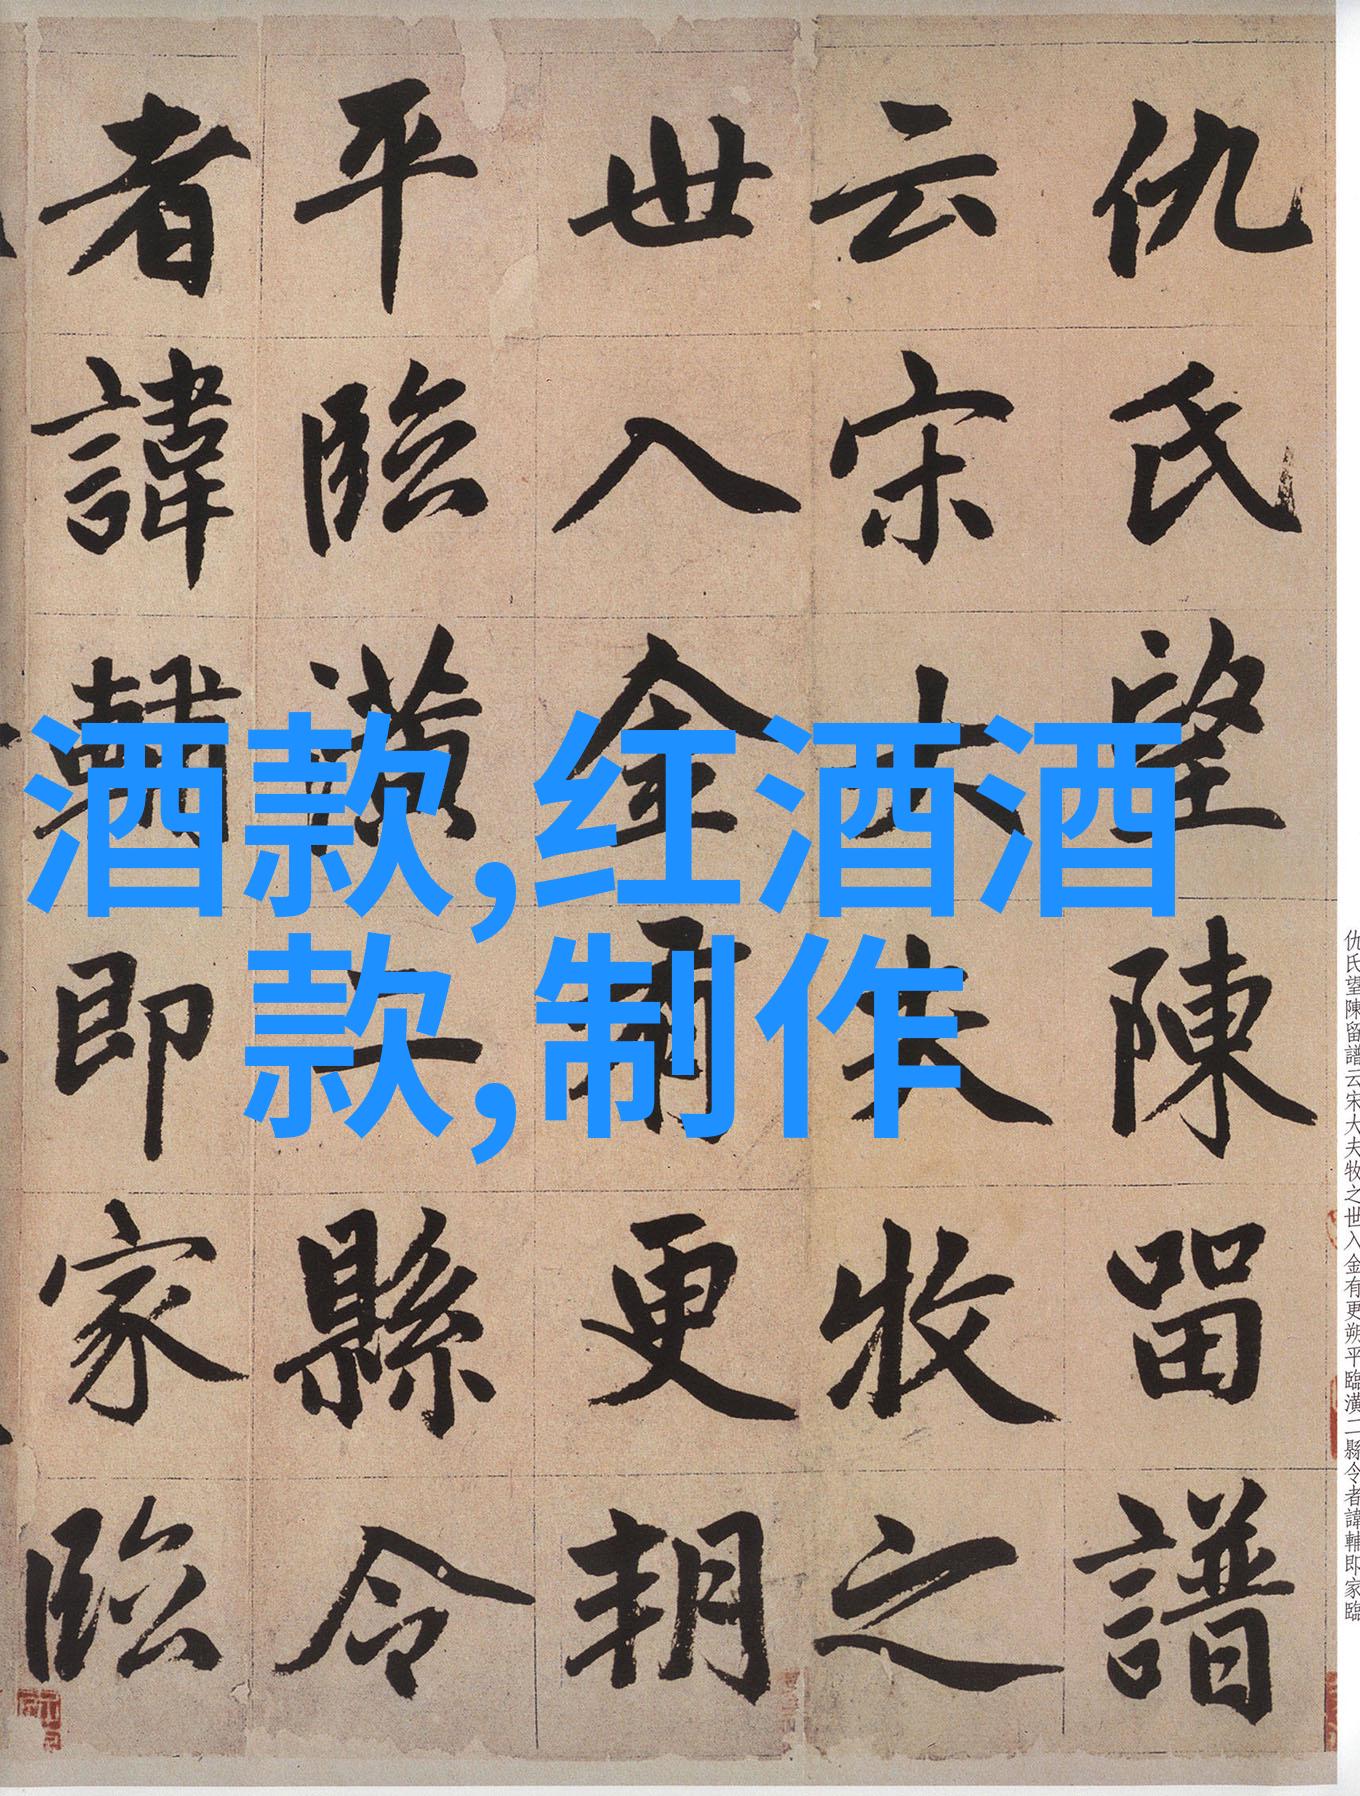 仇氏望陳留譜
云宋大夫牧之
世入金有更朔
平臨潢二縣令
者諱輔即家臨
酒款,红酒酒
款,制作
仇氏望陳留譜云宋大夫牧之世入金有更朔平臨潢二縣令者諱輔即家臨